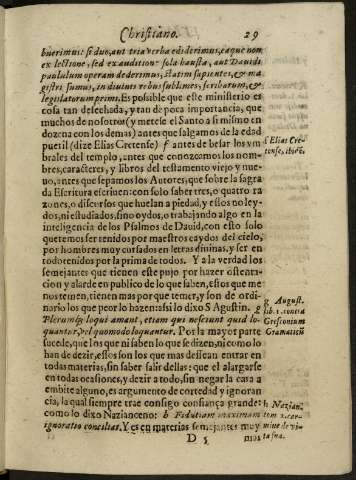 Christiano. 29
buerimus: si duo, aut tria verba ediderimus, eaque non
ex lectione, sed ex auditione sola hausta, aut Dauidi
paululum operam dederimus, statim sapientes, & ma
gistri sumus, in diuinis rebus sublimes, scribarum, &
legislatorum primi. Es possible que este ministerio es
cosa tan desechada, y tan de poca importancia, que
muchos de nosotros (y metese el Santo a si mismo en
dozena con los demas) antes que salgamos de la edad
pueril (dize Elias Cretense) f antes de besar los vm
f Elias Cre-
brales del templo, antes que conozcamos los nom-
tense, ibi
bres, caracteres, y libros del testamento viejo y nue-
uo, antes que sepamos los Autores, que sobre la sagra
da Escritura escriuen: con solo saber tres, o quatro ra
zones, o discursos que huelan a piedad, y estos no ley-
dos, ni estudiados, sino oydos, o trabajando algo en la
inteligencia de los Psalmos de Dauid, con esto solo
queremos ser tenidos por maestros caydos del cielo,
por hombres muy cursados en letras diuinas, y ser en
todo tenidos por la prima de todos. Y a la verdad los
semejantes que tienen este pujo por hazer ostenta-
cion y alarde en publico de lo que saben, estos que me
nos temen, tienen mas por que temer, y son de ordi-
nario los que peor lo hazen: assi lo dixo S. Agustin. g
g August.
Plerumque loqui amant, etiam qui nesciunt quid lo-
lib. 1. contra
quantur, vel quomodo loquantur. Por la mayor parte
Cresconium
sucede, que los que ni saben lo que se dizen, ni como lo
Gramaticũ
han de dezir, essos son los que mas dessean entrar en
todas materias, sin saber salir dellas: que el alargarse
en todas ocasiones, y dezir a todo, sin negar la casa a
embite alguno, es argumento de cortedad y ignoran
cia, la qual siempre trae consigo confiança grande:
h Nazian.
como lo dixo Nazianceno: h Fidutiam maximam
ignoratio conciliat. Y es en materias semejantes muy
D 5
mos